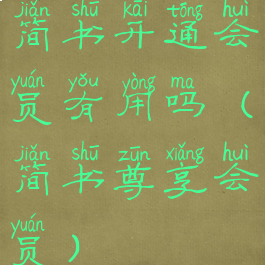 jiǎn shū kāi tōng huì
简书开通会
yuán yǒu yòng ma
员有用吗（
jiǎn shū zūn xiǎng huì
简书尊享会
yuán
员）